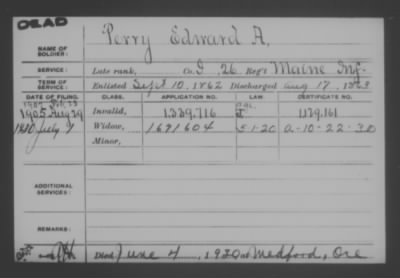 DEAD
NAME OF SOLDIER: Perry Edward A.
SERVICE: Late rank, Co. G, 26 Reg't Maine Inf.
TERM OF SERVICE: Enlisted Sept 10, 1862 Discharged Aug 17, 1863
DATE OF FILING. CLASS. APPLICATION NO. LAW. CERTIFICATE NO.
1905 Aug 29 Invalid, 1,339,716 1,139,161
July 9 Widow, 1671604 5-1-20 A-10-22-30
Minor,
ADDITIONAL SERVICES:
REMARKS:
Died June 4, 1930 at Medford, Ore